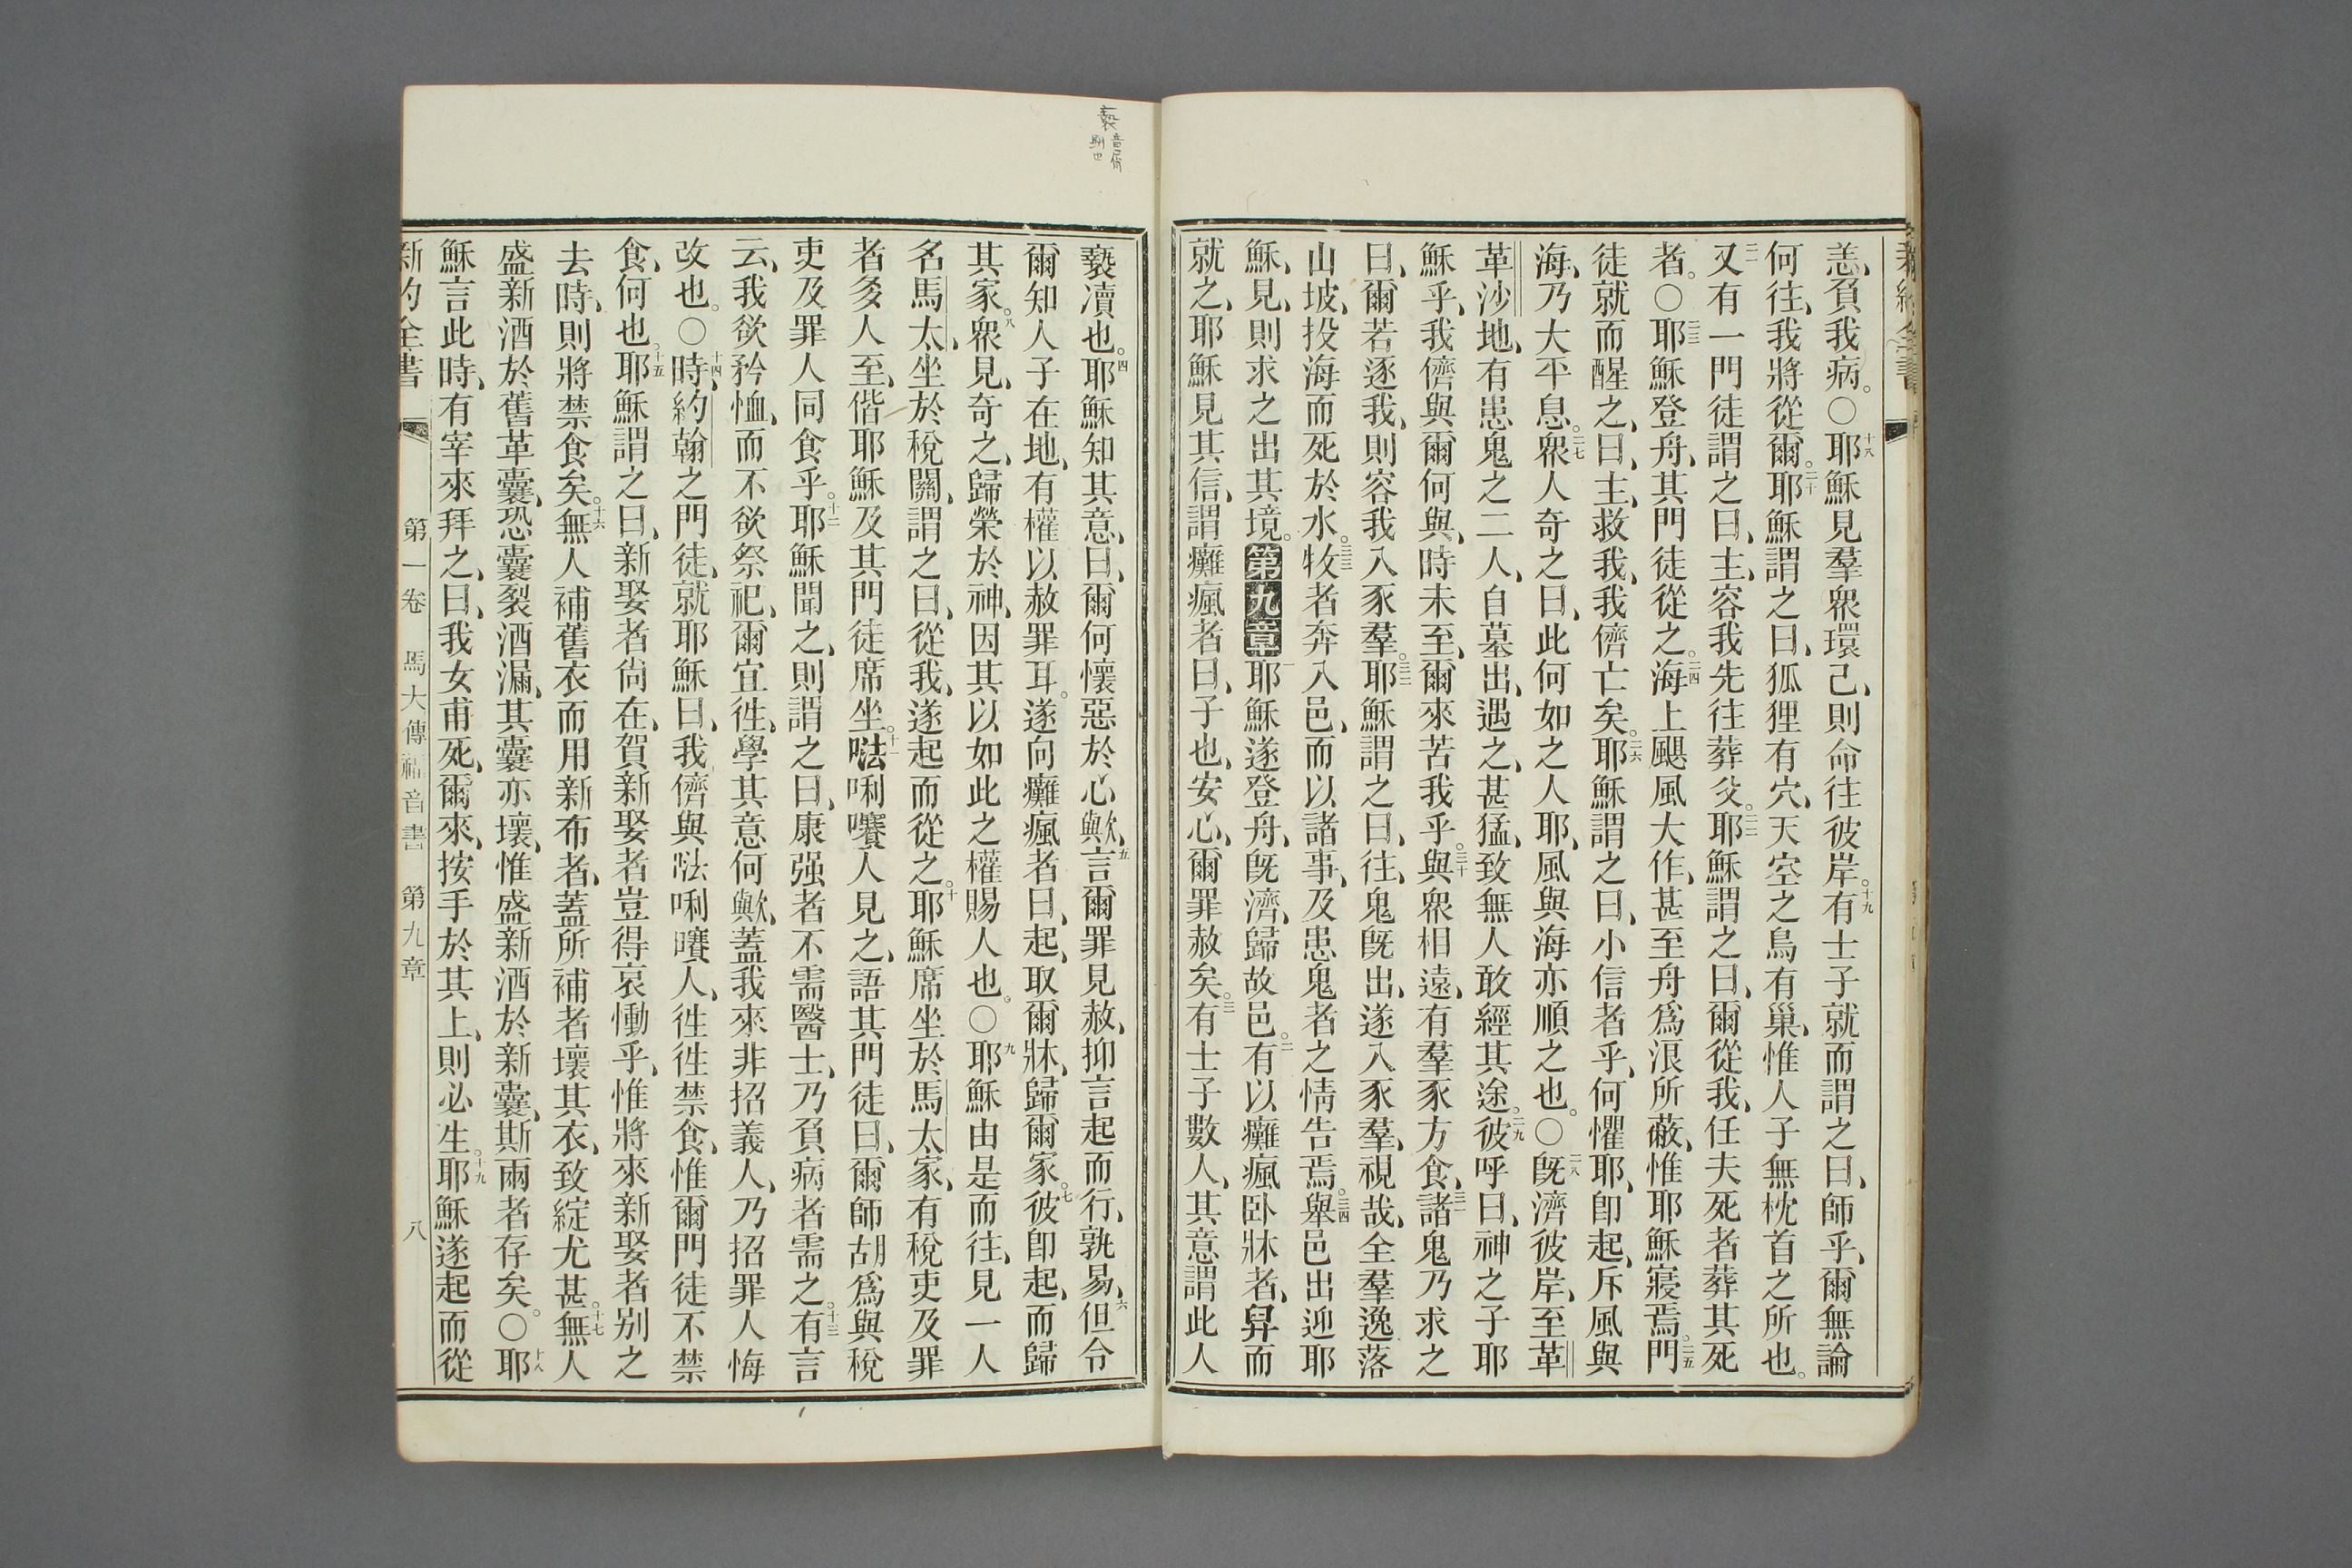 恙、負我病。〇十八耶穌見羣衆環己、則命往彼岸。十九有士子就而謂之曰、師乎、爾無論
何往、我將從爾。二十耶穌謂之曰、狐狸有穴、天空之鳥有巢、惟人子無枕首之所也。
二一又有一門徒謂之曰、主、容我先往葬父。二二耶穌謂之曰、爾從我、任夫死者葬其死
者。〇二三耶穌登舟、其門徒從之。二四海上颶風大作、甚至舟爲浪所蔽、惟耶穌寢焉。二五門
徒就而醒之、曰、主、救我、我儕亡矣。二六耶穌謂之曰、小信者乎、何懼耶、卽起、斥風與
海、乃大平息。二七衆人奇之曰、此何如之人耶、風與海亦順之也。〇二八旣濟彼岸、至革
革沙地、有患鬼之二人、自墓出、遇之、甚猛、致無人敢經其途。二九彼呼曰、神之子耶
穌乎、我儕與爾何與、時未至、爾來苦我乎。三十與衆相遠、有羣豕方食、三一諸鬼乃求之
曰、爾若逐我、則容我入豕羣。三二耶穌謂之曰、往、鬼旣出、遂入豕羣、視哉、全羣逸落
山坡、投海而死於水。三三牧者奔入邑、而以諸事、及患鬼者之情告焉。三四舉邑出迎耶
穌、見、則求之出其境。第九章一耶穌遂登舟、旣濟、歸故邑。二有以癱瘋卧牀者、舁而
就之、耶穌見其信、謂癱瘋者曰、子也、安心、爾罪赦矣。三有士子數人、其意謂此人
褻音屑
褻瀆也。四耶穌知其意、曰、爾何懷惡於心歟、五言爾罪見赦、抑言起而行、孰易、六但令
爾知人子在地、有權以赦罪耳。遂向癱瘋者曰、起、取爾牀、歸爾家。七彼卽起、而歸
其家。八衆見、奇之、歸榮於神、因其以如此之權賜人也。〇九耶穌由是而往、見一人
名馬太、坐於稅關、謂之曰、從我、遂起而從之。十耶穌席坐於馬太家、有稅吏及罪
者多人至、偕耶穌及其門徒席坐。十一𠵽唎㘔人見之、語其門徒曰、爾師胡爲與稅
吏及罪人同食乎。十二耶穌聞之、則謂之曰、康强者不需醫士、乃負病者需之。十三有言
云、我欲矜恤、而不欲祭祀、爾宜徃、學其意何歟、蓋我來非招義人、乃招罪人悔
改也。〇十四時、約翰之門徒、就耶穌曰、我儕與𠵽唎㘔人、徃徃禁食、惟爾門徒不禁
食、何也。十五耶穌謂之曰、新娶者尙在、賀新娶者豈得哀慟乎、惟將來新娶者別之
去時、則將禁食矣。十六無人補舊衣而用新布者、蓋所補者壞其衣、致綻尤甚。十七無人
盛新酒於舊革囊、恐囊裂酒漏、其囊亦壞、惟盛新酒於新囊、斯兩者存矣。〇十八耶
穌言此時、有宰來拜之、曰、我女甫死、爾來、按手於其上、則必生。十九耶穌遂起而從
新約全書 第一卷 馬太傳福音書 第九章 八